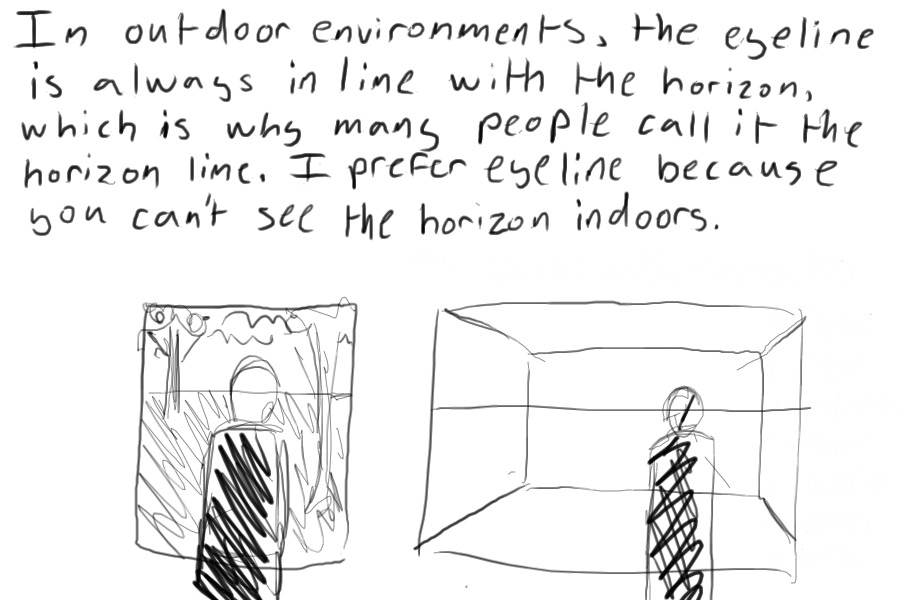 In outdoor environments, the eyeline
is always in line with the horizon,
which is why many people call it the
horizon line. I prefer eyeline because
you can't see the horizon indoors.